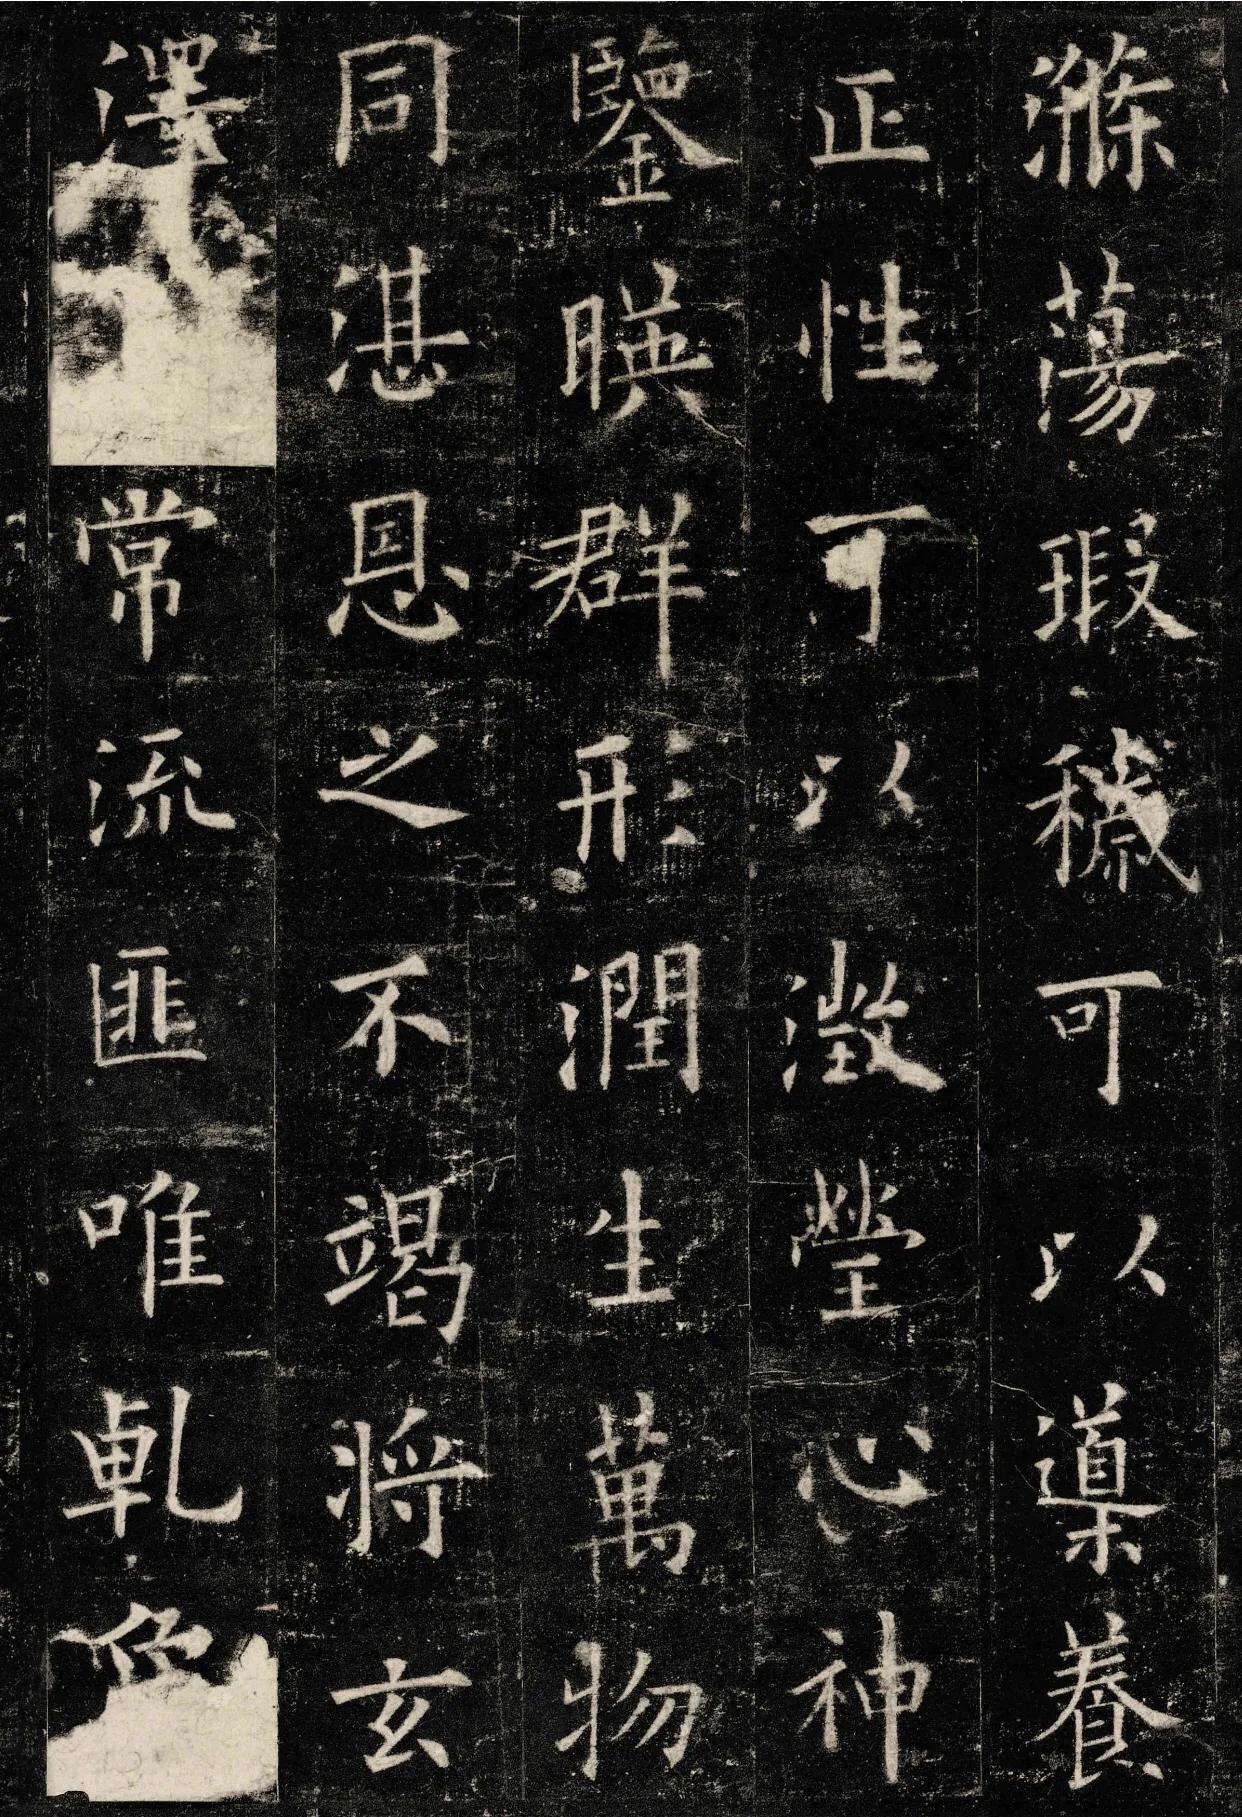 滌蕩瑕穢可以導養
正性可以澂瑩心神
鑒暎群形潤生萬物
同湛恩之不竭將玄
澤常流匪唯乹